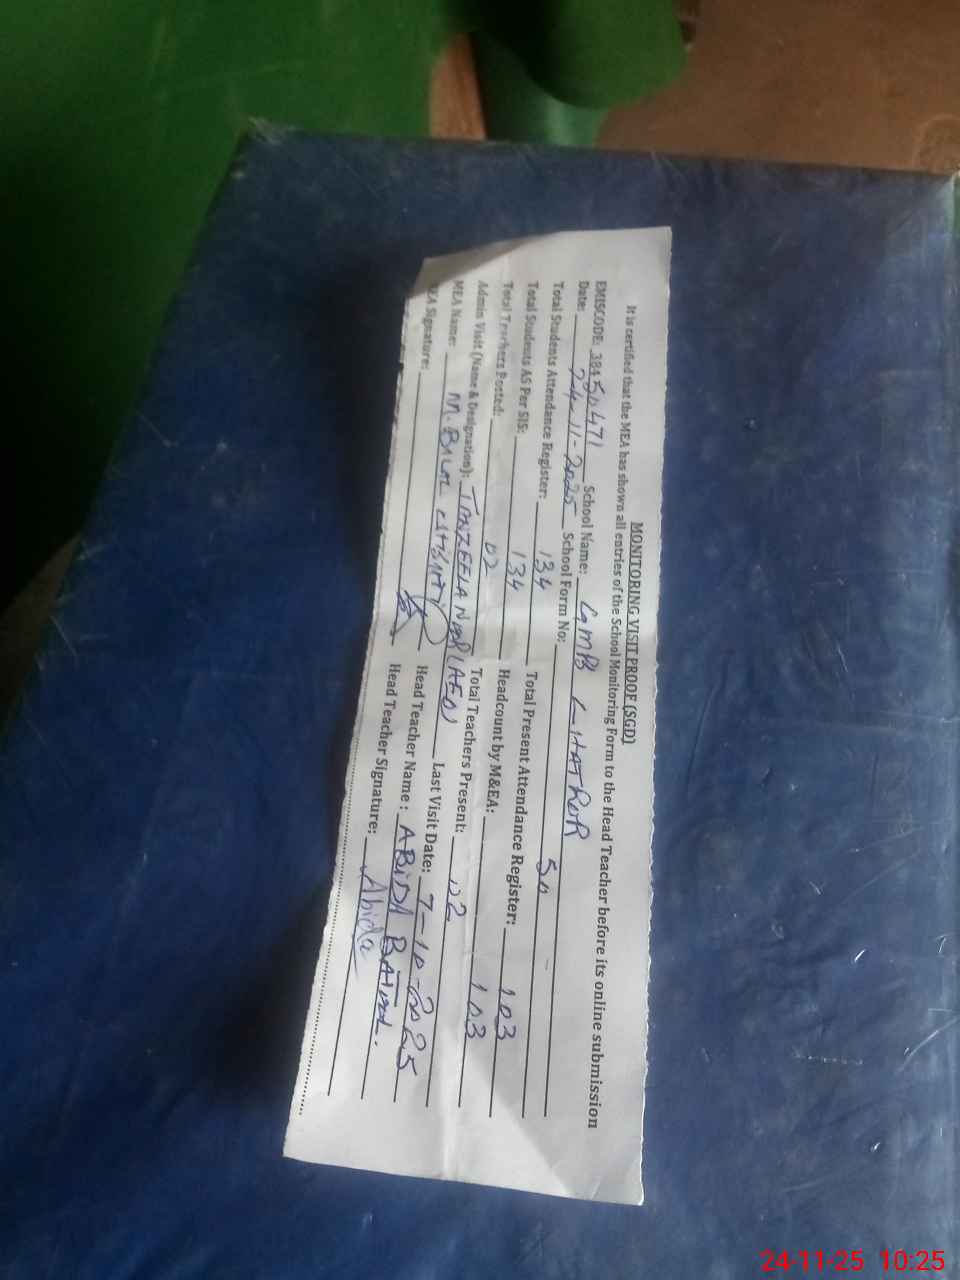 MONITORING VISIT PROOF (SGD)
It is certified that the MEA has shown all entries of the School Monitoring Form to the Head Teacher before its online submission
EMISCODE: 38450471 School Name: GMPS LHATROR
Date: 24-11-2025 School Form No: 50
Total Students Attendance Register: 134 Total Present Attendance Register: 103
Total Students AS Per SIS: 134 Headcount by M&EA: 103
Total Teachers Posted: 02 Total Teachers Present: 02
Admin Visit (Name & Designation): TANZEELA NOOR (AEO) Last Visit Date: 7-10-2025
MEA Name: M. BILAL Head Teacher Name: ABIDA BATOOL.
MEA Signature: Head Teacher Signature: Abida
24-11-25 10:25